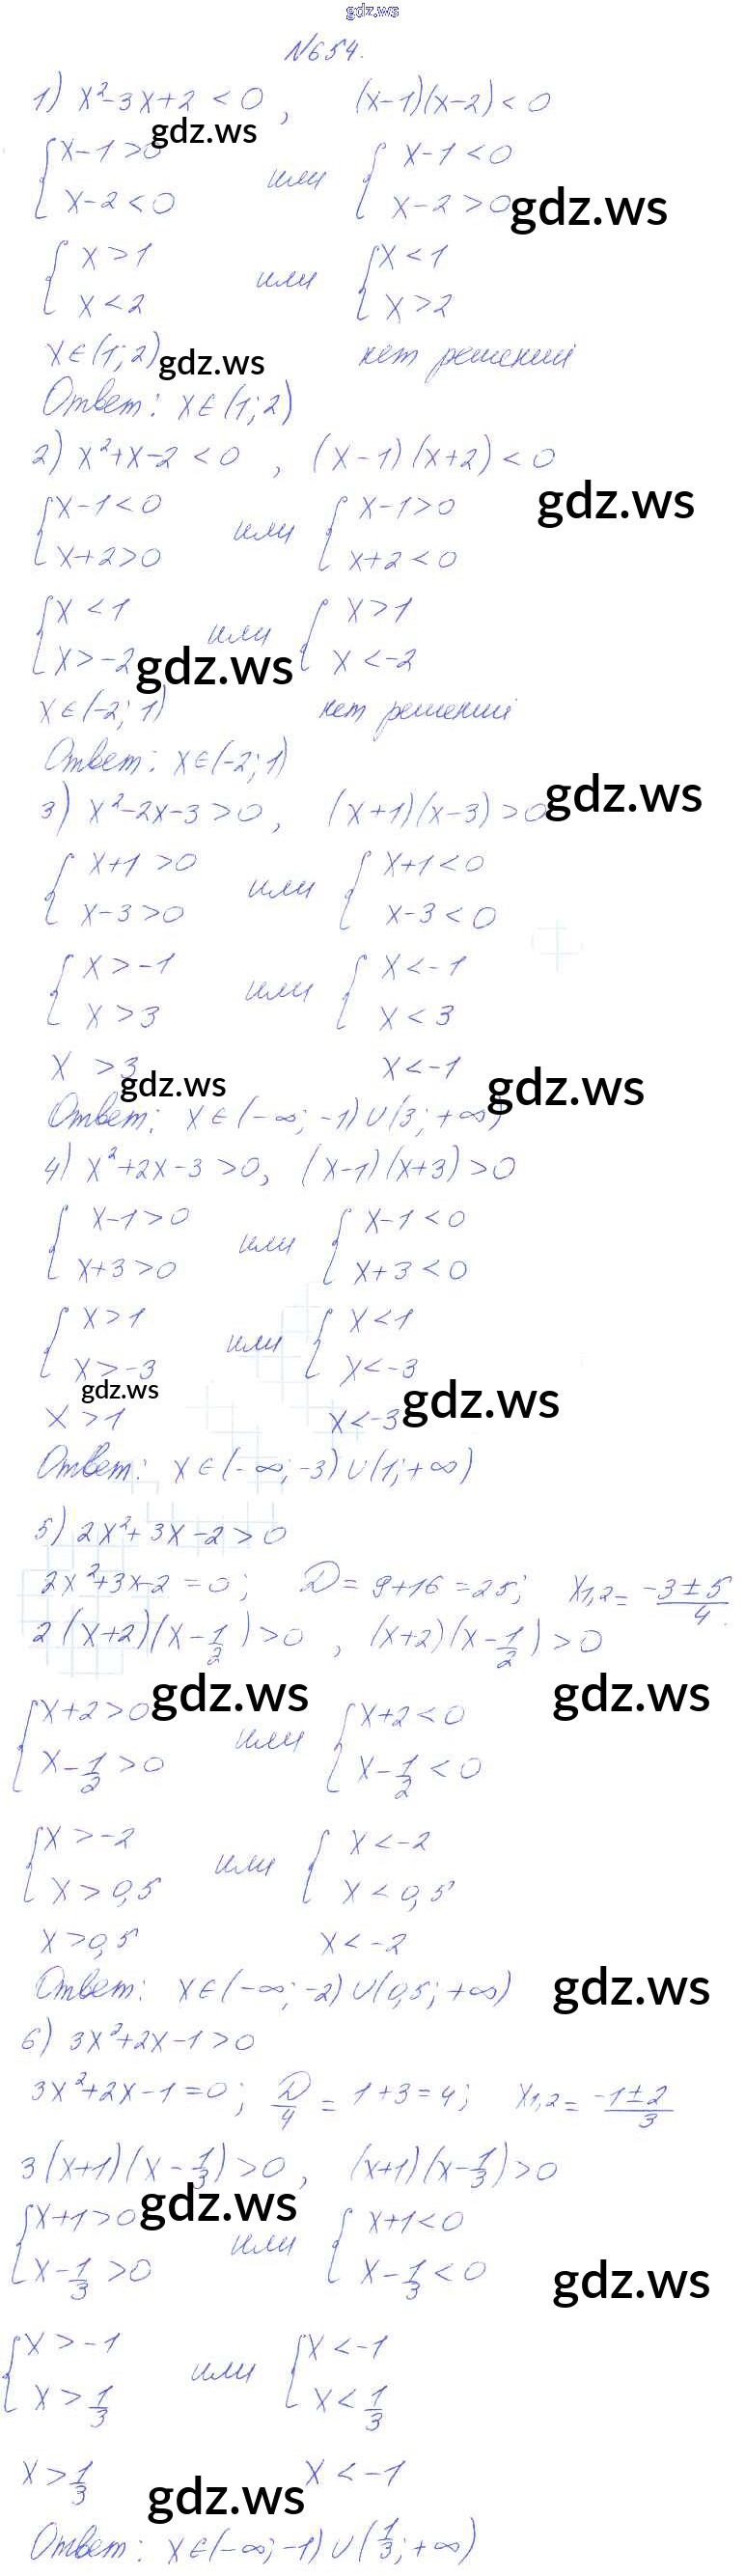 gdz.ws
№654.
1) x²-3x+2<0, (x-1)(x-2)<0
gdz.ws
{x-1>0 или {x-1<0
{x-2<0 {x-2>0 gdz.ws
{x>1 или {x<1
{x<2 {x>2
x∈(1;2) gdz.ws нет решений
Ответ: x∈(1;2)
2) x²+x-2<0, (x-1)(x+2)<0
{x-1<0 или {x-1>0 gdz.ws
{x+2>0 {x+2<0
{x<1 или {x>1
{x>-2 gdz.ws {x<-2
x∈(-2;1) нет решений
Ответ: x∈(-2;1)
3) x²-2x-3>0, (x+1)(x-3)>0 gdz.ws
{x+1>0 или {x+1<0
{x-3>0 {x-3<0
{x>-1 или {x<-1
{x>3 {x<3
x>3 x<-1
gdz.ws gdz.ws
Ответ: x∈(-∞;-1)∪(3;+∞)
4) x²+2x-3>0, (x-1)(x+3)>0
{x-1>0 или {x-1<0
{x+3>0 {x+3<0
{x>1 или {x<1
{x>-3 {x<-3
gdz.ws gdz.ws
x>1 x<-3
Ответ: x∈(-∞;-3)∪(1;+∞)
5) 2x²+3x-2>0
2x²+3x-2=0; D=9+16=25; x1,2=(-3±5)/4.
2(x+2)(x-1/2)>0, (x+2)(x-1/2)>0
gdz.ws gdz.ws
{x+2>0 или {x+2<0
{x-1/2>0 {x-1/2<0
{x>-2 или {x<-2
{x>0,5 {x<0,5
x>0,5 x<-2
Ответ: x∈(-∞;-2)∪(0,5;+∞) gdz.ws
6) 3x²+2x-1>0
3x²+2x-1=0; D/4=1+3=4; x1,2=(-1±2)/3
3(x+1)(x-1/3)>0, (x+1)(x-1/3)>0
gdz.ws
{x+1>0 или {x+1<0
{x-1/3>0 {x-1/3<0 gdz.ws
{x>-1 или {x<-1
{x>1/3 {x<1/3
x>1/3 x<-1
gdz.ws
Ответ: x∈(-∞;-1)∪(1/3;+∞)